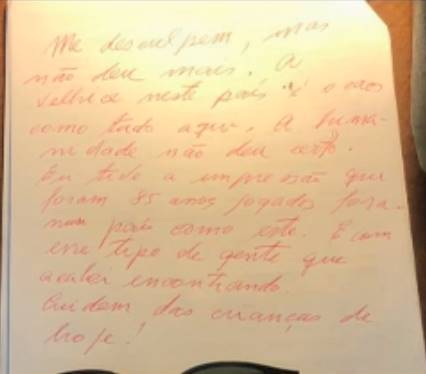 Me desculpem, mas
não deu mais. A
velhice neste país é o caos
como tudo aqui. A huma-
nidade não deu certo.
Eu tive a impressão que
foram 85 anos jogados fora
num país como este. E com
esse tipo de gente que
acabei encontrando.
Cuidem das crianças de
hoje!